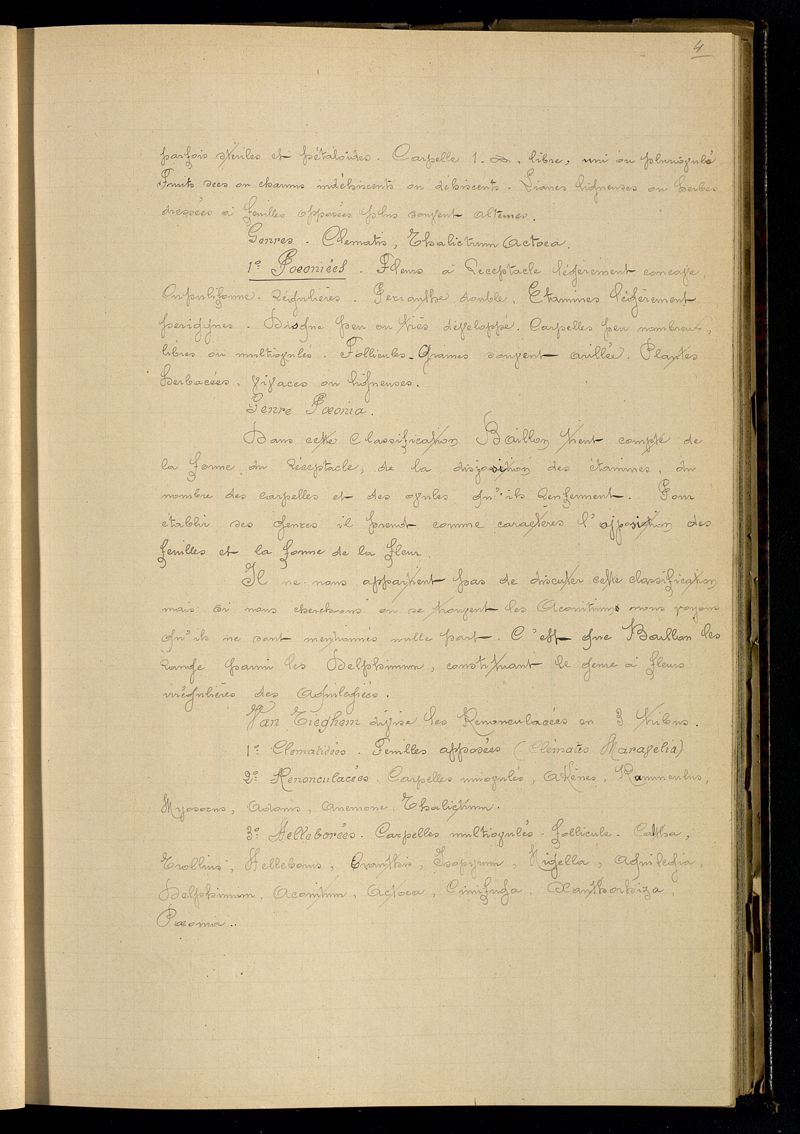 4
parfois stériles et pétaloïdes. Carpelle 1-∞, libre, uni ou pluriovulé
Fruits secs ou charnus indéhiscents ou déhiscents. Lianes ligneuses ou herbes
dressées à feuilles opposées plus souvent alternes.
Genres. Clematis, Thalictrum Actœa.
1º Pœoniées. Fleurs à Réceptacle légèrement concave,
Cupuliforme. Régulières. Perianthe double. Etamines légèrement
perigynes. Disque peu ou très développé. Carpelles peu nombreux,
libres ou multiovulés. Follicules-Graines souvent arillée. Plantes
herbacées, vivaces ou ligneuses.
Genre Pœonia.
Dans cette Classification Baillon tient compte de
la forme du réceptacle, de la disposition des étamines, du
nombre des carpelles et des ovules qu'ils renferment. Pour
établir ses genres il prend comme caractères l'opposition des
feuilles et la forme de la fleur.
Il ne nous appartient pas de discuter cette classification
mais si nous cherchons où se trouvent les Aconitums nous voyons
qu'ils ne sont mentionnés nulle part. C'est que Baillon les
range parmi les Delphinium, constituant le genre à fleurs
irrégulières des Aquilegiées.
Van Tieghem divise les Renonculacées en 3 tribus.
1º Clematidées. Feuilles opposées (Clématis Naravelia)
2º Renonculacées. Carpelles uniovulés, Akènes, Ranunculus,
Myosorus, Adonis, Anemone, Thalictrum.
3º Helleborées. Carpelles multiovulés. follicule. Caltha,
Trollius, Helleborus, Eranthis, Isopyrum, Nigella, Aquilegia,
Delphinium, Aconitum, Actœa, Cimifuga, Xanthorhiza,
Pœonia..